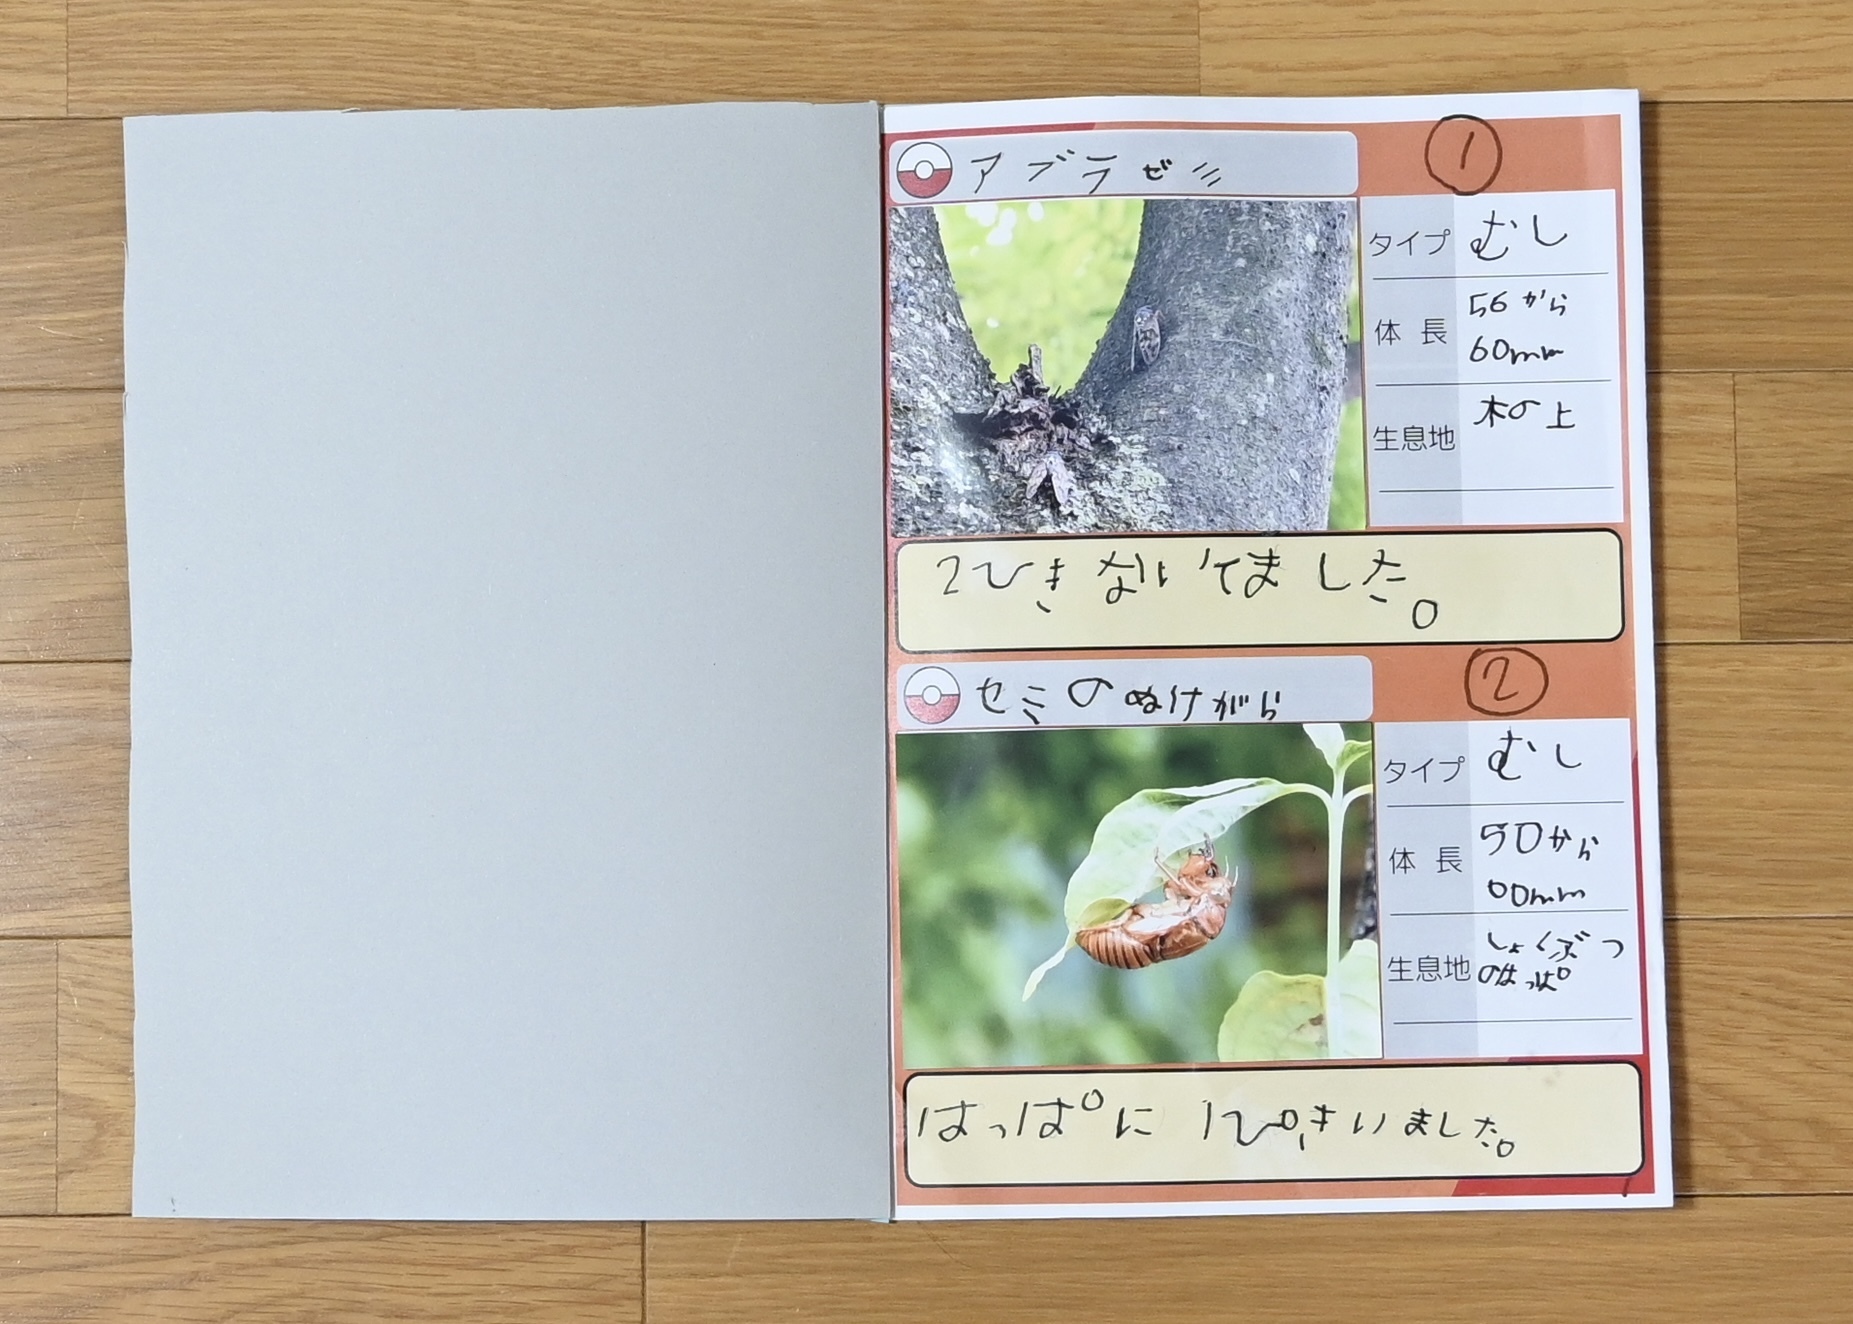 アブラゼミ
①
タイプ むし
体長 56から
60mm
生息地 木の上
2ひきないてました。
セミのぬけがら
②
タイプ むし
体長 50から
60mm
生息地 しょくぶつ
のはっぱ
はっぱに1ぴきいました。